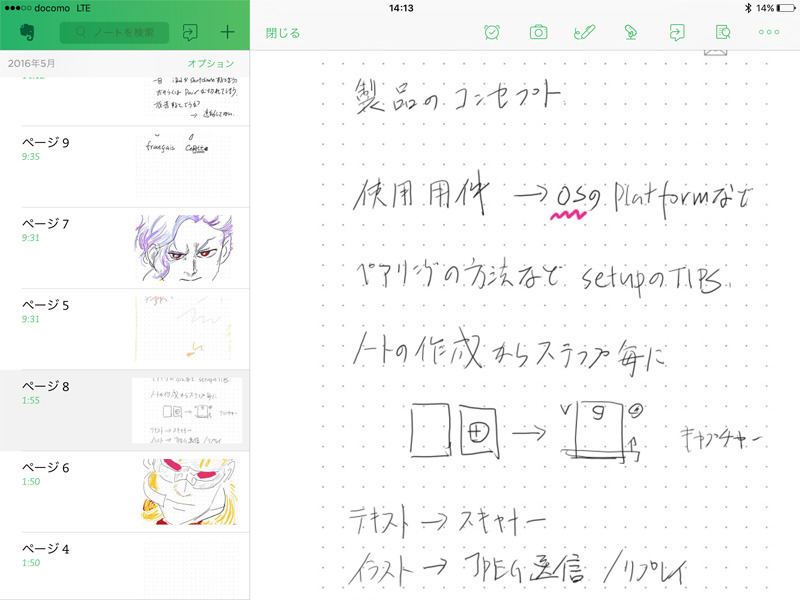 docomo LTE
14:13
14%
ノートを検索
2016年5月
オプション
ページ 9
9:35
français
ページ 7
9:31
ページ 5
9:31
ページ 8
1:55
ページ 6
1:50
ページ 4
1:50
閉じる
製品のコンセプト
使用用件 → OSのPlatformなど
ペアリングの方法など setupのTIPS
ノートの作成からステップ毎に
V g
キャプチャー
テキスト → スキャナー
イラスト → JPEG送信 /リプレイ